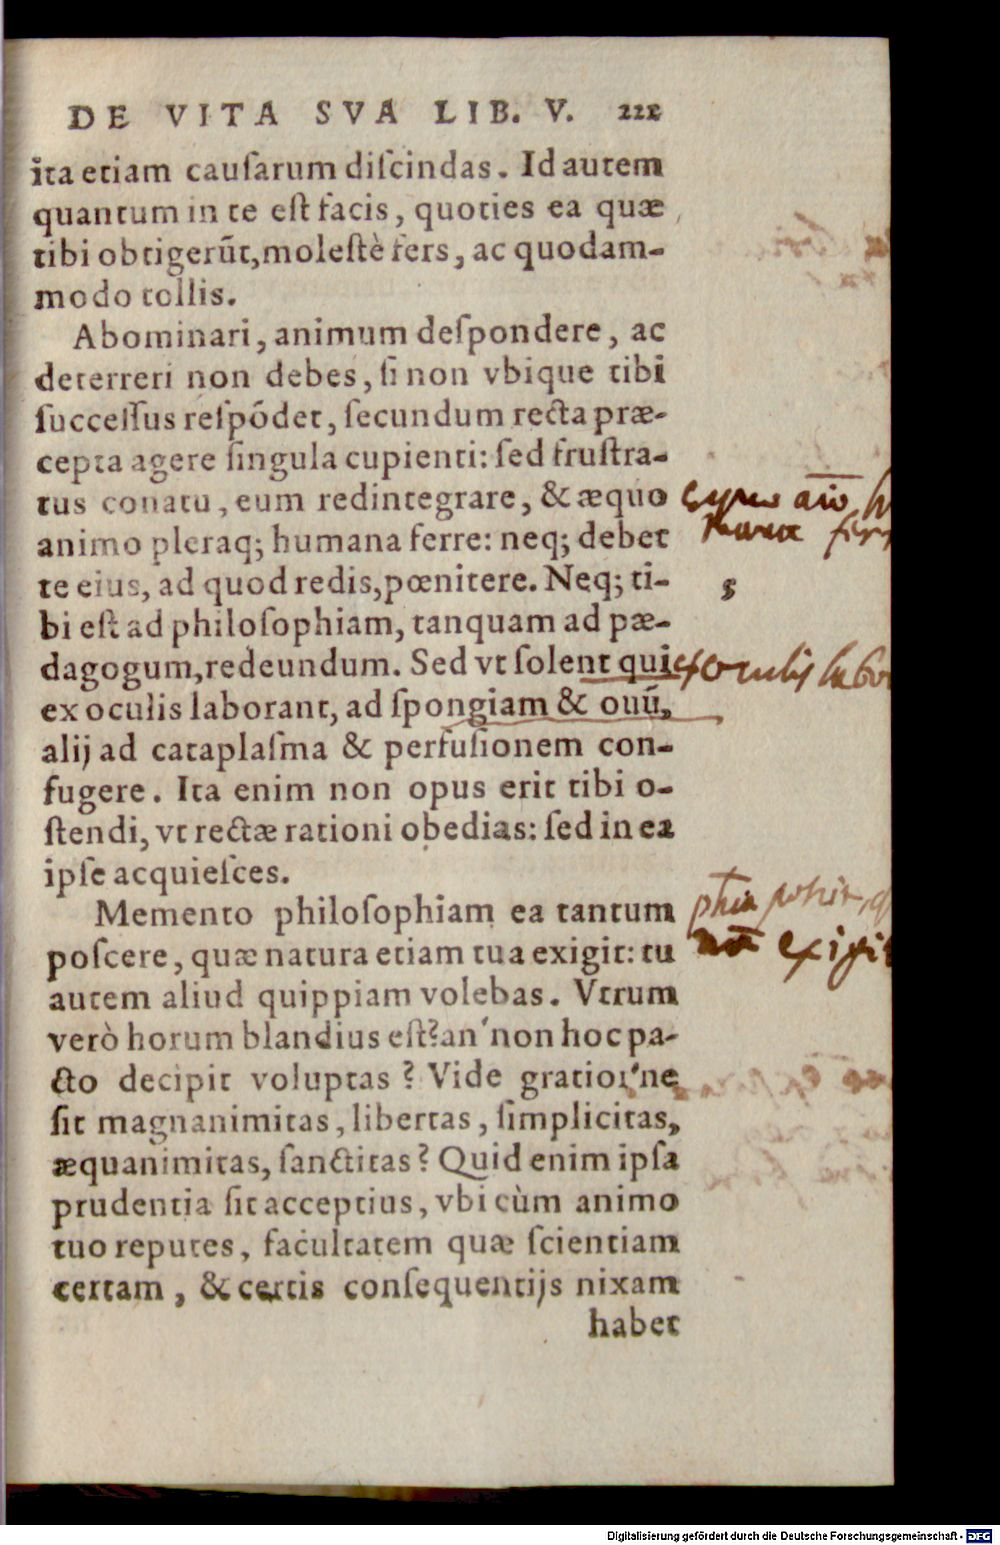 DE VITA SVA LIB. V. 221
ita etiam cauſarum diſcindas. Id autem
quantum in te eſt facis, quoties ea quæ
tibi obtigerūt, moleſtè fers, ac quodam-
modo tollis.
Abominari, animum deſpondere, ac
deterreri non debes, ſi non vbique tibi
ſucceſſus reſpōdet, ſecundum recta præ-
cepta agere ſingula cupienti: ſed fruſtra-
tus conatu, eum redintegrare, & æquo
animo pleraq; humana ferre: neq; debet
te eius, ad quod redis, pœnitere. Neq; ti-
bi eſt ad philoſophiam, tanquam ad pæ-
dagogum, redeundum. Sed vt ſolent qui
ex oculis laborant, ad ſpongiam & ouū,
alij ad cataplaſma & perfuſionem con-
fugere. Ita enim non opus erit tibi o-
ſtendi, vt rectæ rationi obedias: ſed in ea
ipſe acquieſces.
Memento philoſophiam ea tantum
poſcere, quæ natura etiam tua exigit: tu
autem aliud quippiam volebas. Vtrum
verò horum blandius eſt? an non hoc pa-
cto decipit voluptas? Vide gratior'ne
ſit magnanimitas, libertas, ſimplicitas,
æquanimitas, ſanctitas? Quid enim ipſa
prudentia ſit acceptius, vbi cùm animo
tuo reputes, facultatem quæ ſcientiam
certam, & certis conſequentijs nixam
habet
ex oculis labo
exigit
Digitalisierung gefördert durch die Deutsche Forschungsgemeinschaft - DFG